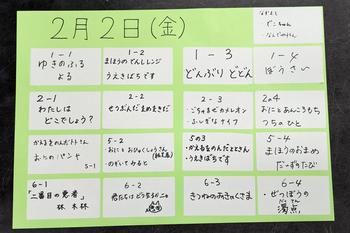 2月2日(金)
なかよし
ずこちゃん
なんでのけん
1-1
ゆきのふる
よる
1-2
まほうのでんしレンジ
うえきばちです
1-3
どんぶり どどん
1-4
ぼうさい
2-1
わたしは
どこでしょう?
2-2
せつぶんだまめまきだ
2-3
・ごちゃまぜカメレオン
・ふしぎなナイフ
2の4
おにとあんころもち
つちのひと
かえるをのんだととさん
おにのパンツ
5-1
5-2
おにと おひゃくしょうさん
のぞいてみると
5の3
・かえるをのんだととさん
・うえきばちです
5-4
まほうのおまめ
だいずのたび
6-1
「二番目の悪者」
林 木林
6-2
君たちはどう生きるニャ
6-3
きつねのあきのくさま
6-4
・ぜっぽうの
濁点